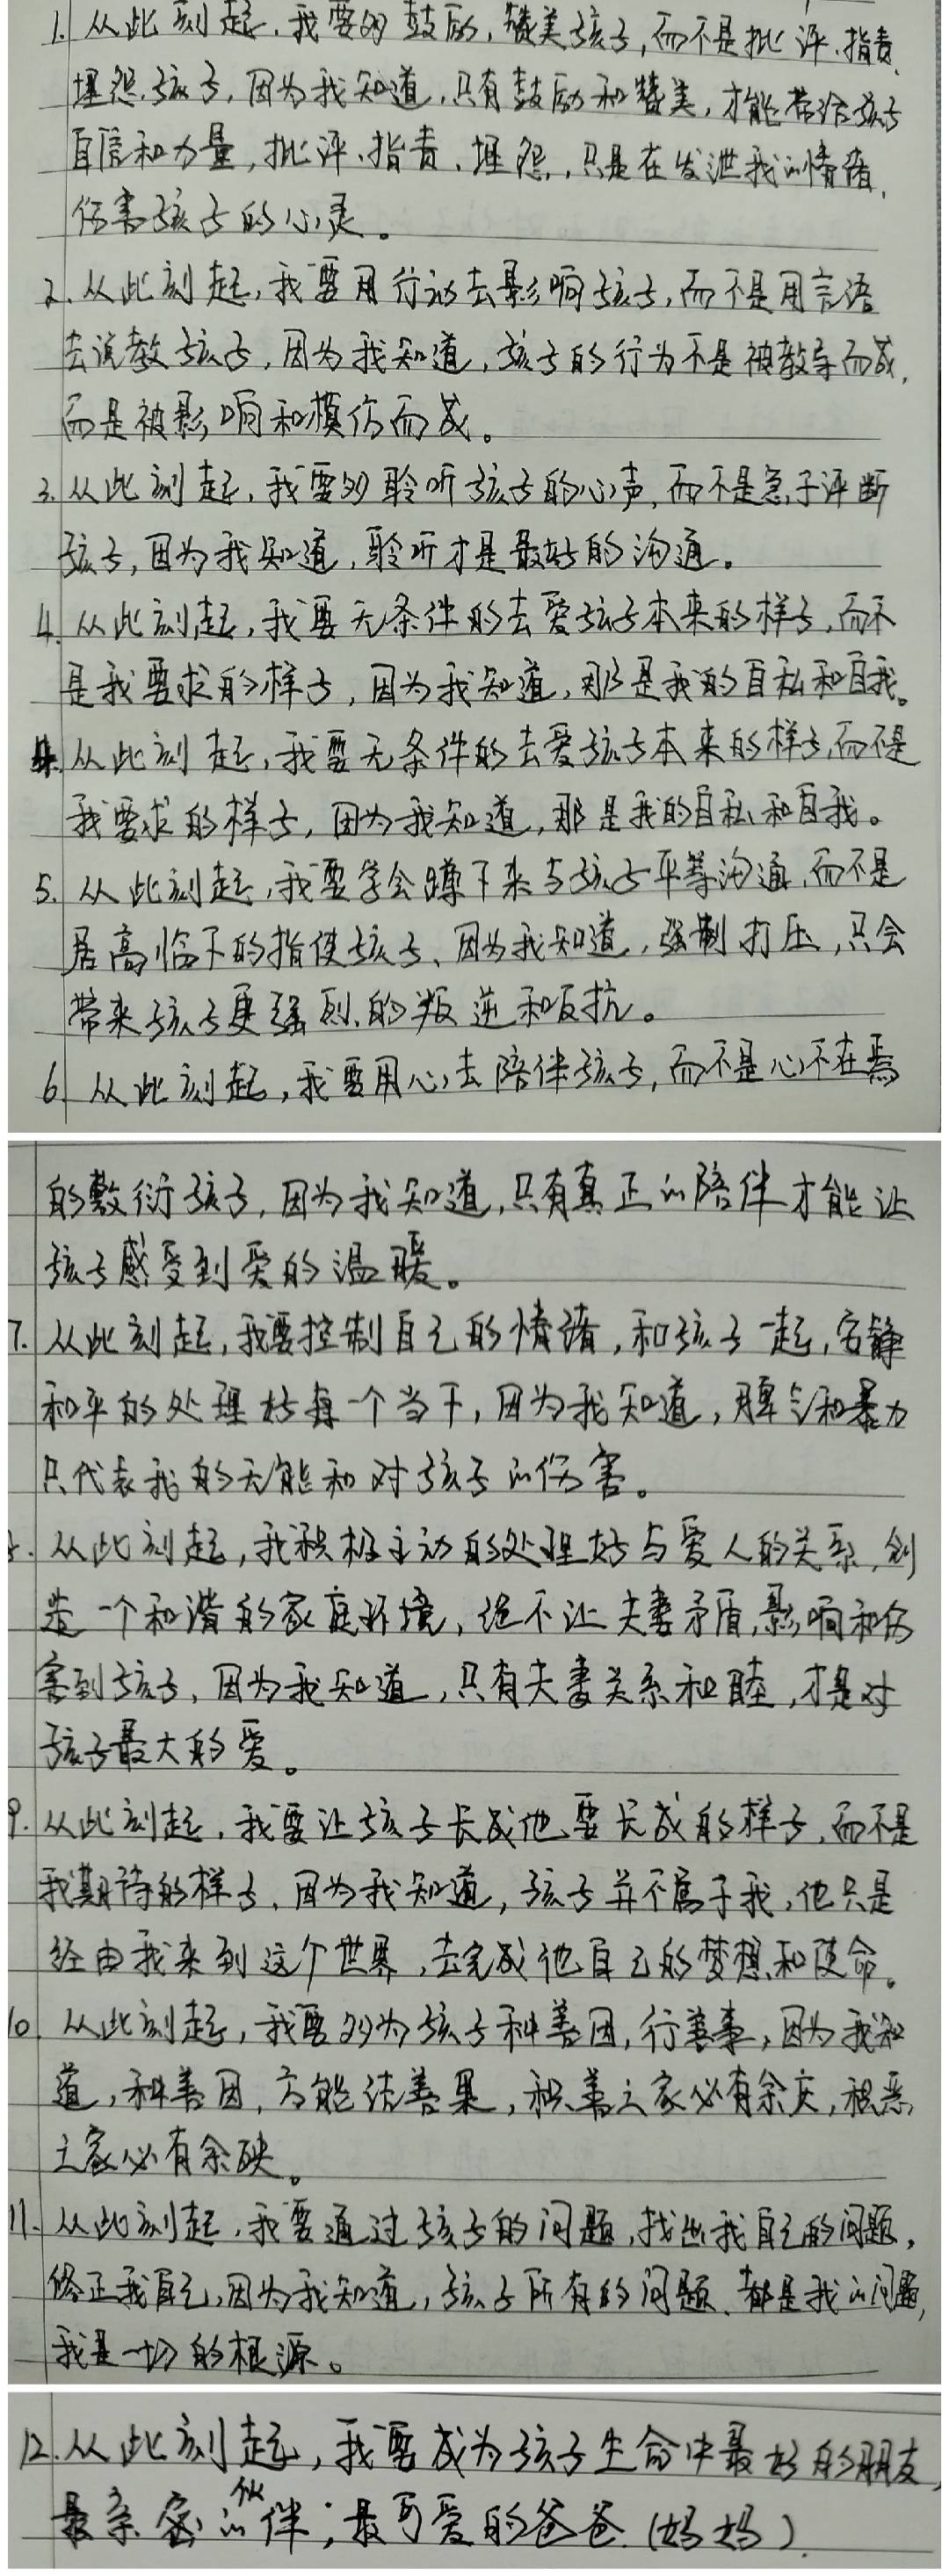 1. 从此刻起，我要多鼓励，赞美孩子，而不是批评、指责、
埋怨孩子，因为我知道，只有鼓励和赞美，才能带给孩子
自信和力量，批评、指责、埋怨，只是在发泄我的情绪，
伤害孩子的心灵。
2. 从此刻起，我要用行动去影响孩子，而不是用言语
去说教孩子，因为我知道，孩子的行为不是被教导而成，
而是被影响和模仿而成。
3. 从此刻起，我要多聆听孩子的心声，而不是急于评断
孩子，因为我知道，聆听才是最好的沟通。
4. 从此刻起，我要无条件的去爱孩子本来的样子，而不
是我要求的样子，因为我知道，那是我的自私和自我。
4. 从此刻起，我要无条件的去爱孩子本来的样子，而不是
我要求的样子，因为我知道，那是我的自私和自我。
5. 从此刻起，我要学会蹲下来与孩子平等沟通，而不是
居高临下的指使孩子、因为我知道，强制打压，只会
带来孩子更强烈的叛逆和反抗。
6. 从此刻起，我要用心去陪伴孩子，而不是心不在焉
的敷衍孩子，因为我知道，只有真正的陪伴才能让
孩子感受到爱的温暖。
7. 从此刻起，我要控制自己的情绪，和孩子一起，安静
和平的处理好每一个当下，因为我知道，脾气和暴力
只代表我的无能和对孩子的伤害。
从此刻起，我积极主动的处理好与爱人的关系，创
造一个和谐的家庭环境，绝不让夫妻矛盾，影响和伤
害到孩子，因为我知道，只有夫妻关系和睦，才是对
孩子最大的爱。
9. 从此刻起，我要让孩子长成他要长成的样子，而不是
我期待的样子，因为我知道，孩子并不属于我，他只是
经由我来到这个世界，去完成他自己的梦想和使命。
10. 从此刻起，我要多为孩子种善因，行善事，因为我知
道，种善因，方能结善果，积善之家必有余庆，积恶
之家必有余殃。
11. 从此刻起，我要通过孩子的问题，找出我自己的问题，
修正我自己，因为我知道，孩子所有的问题、都是我的问题，
我是一切的根源。
12. 从此刻起，我要成为孩子生命中最好的朋友，
最亲密的伙伴；最可爱的爸爸（妈妈）.